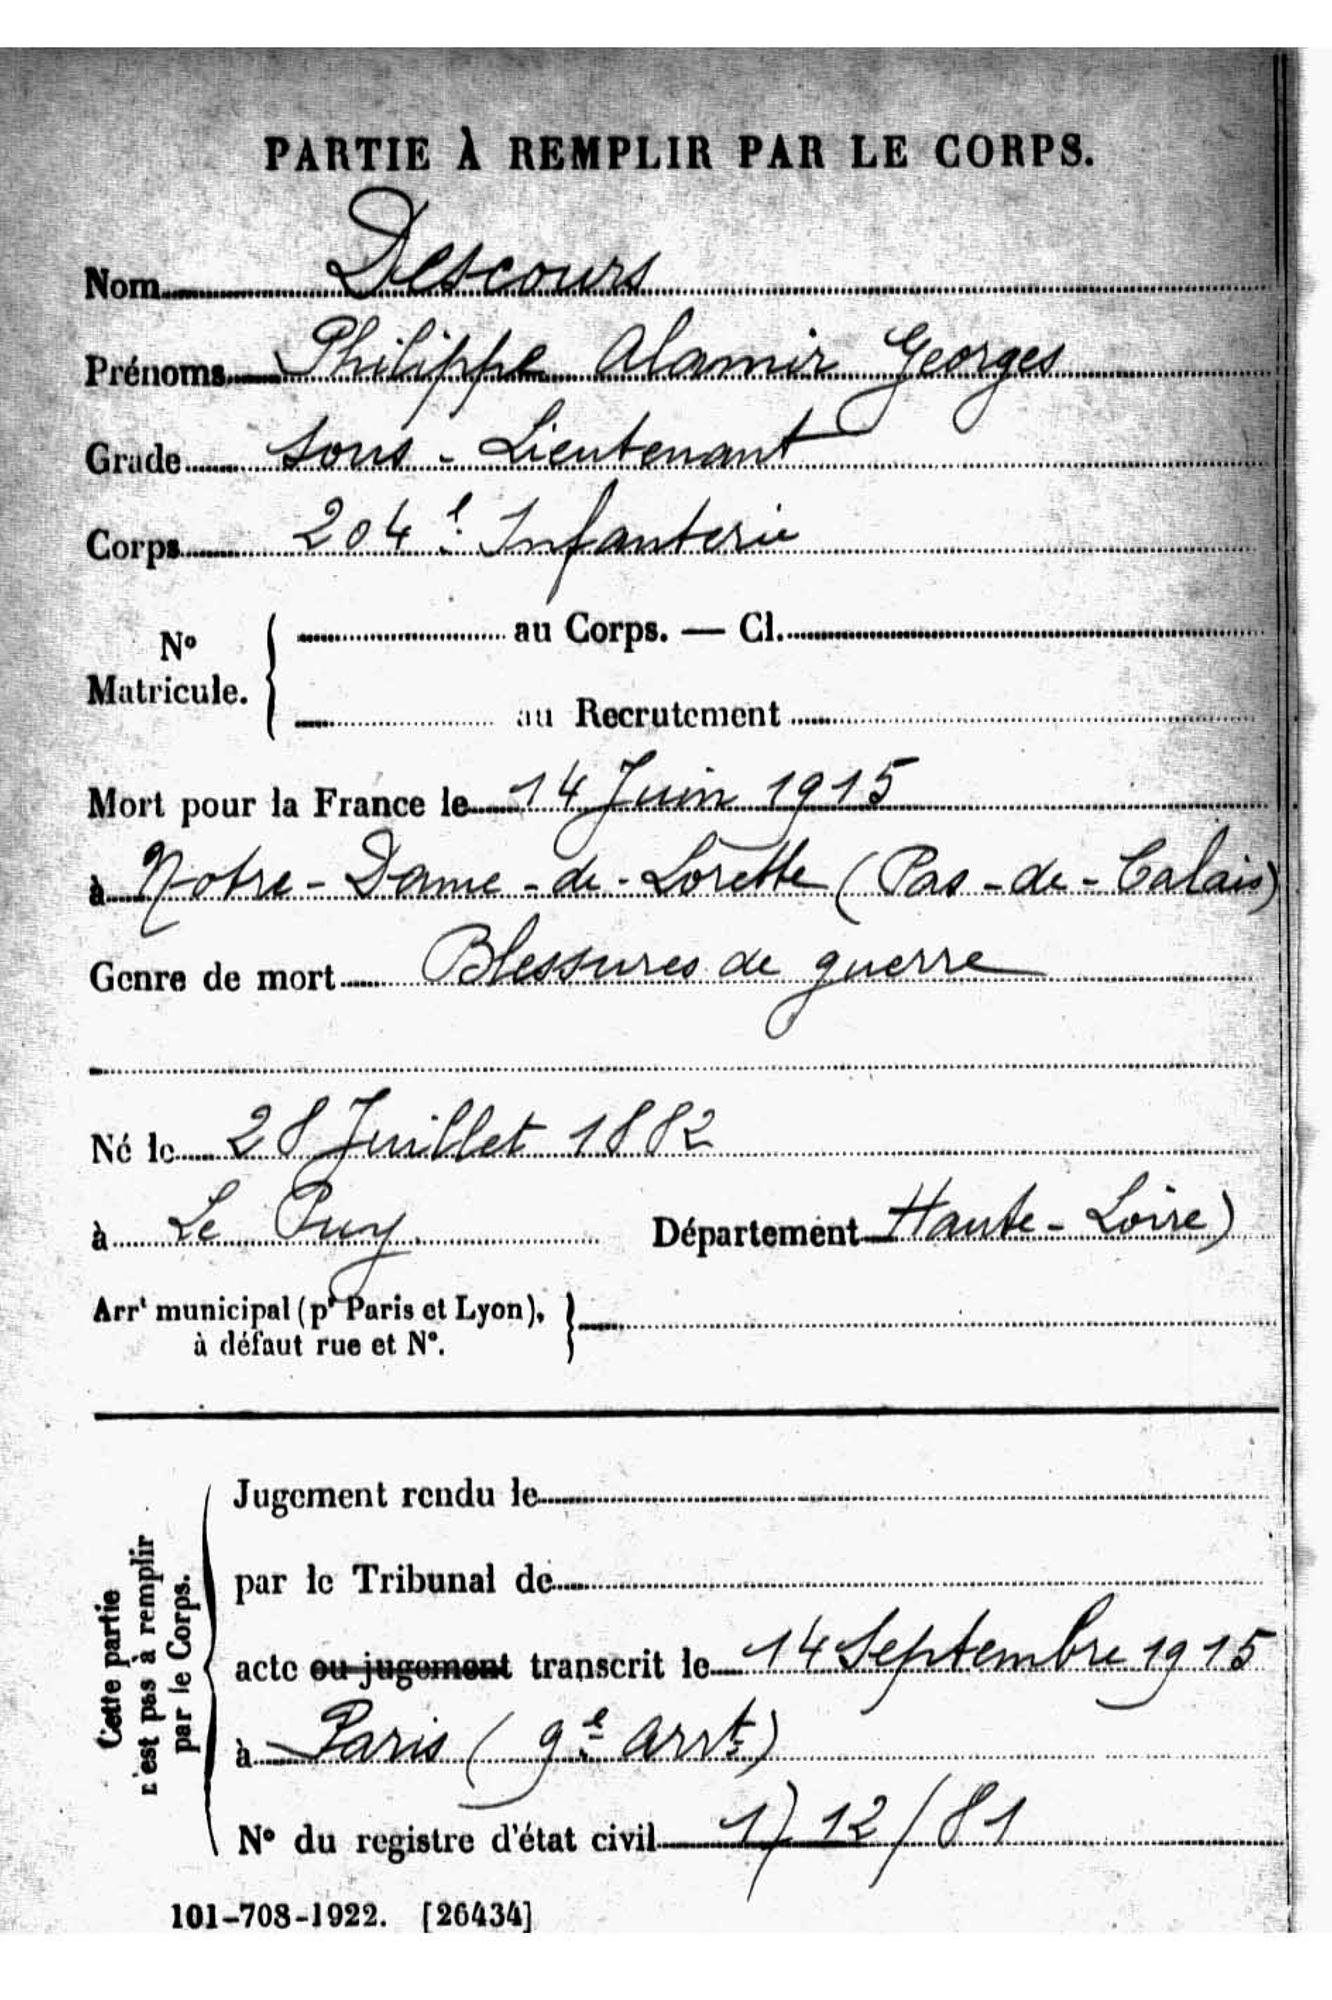 PARTIE À REMPLIR PAR LE CORPS.
Nom Descours
Prénoms Philippe Alamir Georges
Grade Sous-Lieutenant
Corps 204e Infanterie
No Matricule. { au Corps. — Cl.
au Recrutement
Mort pour la France le 14 Juin 1915
à Notre-Dame-de-Lorette (Pas-de-Calais)
Genre de mort Blessures de guerre
Né le 28 Juillet 1882
à Le Puy Département Haute-Loire)
Arrt municipal (pr Paris et Lyon), }
à défaut rue et No.
Cette partie
n'est pas à remplir
par le Corps.
Jugement rendu le
par le Tribunal de
acte ou jugement transcrit le 14 Septembre 1915
à Paris (9e Arrt)
No du registre d'état civil 12/81
101-708-1922. [26434]